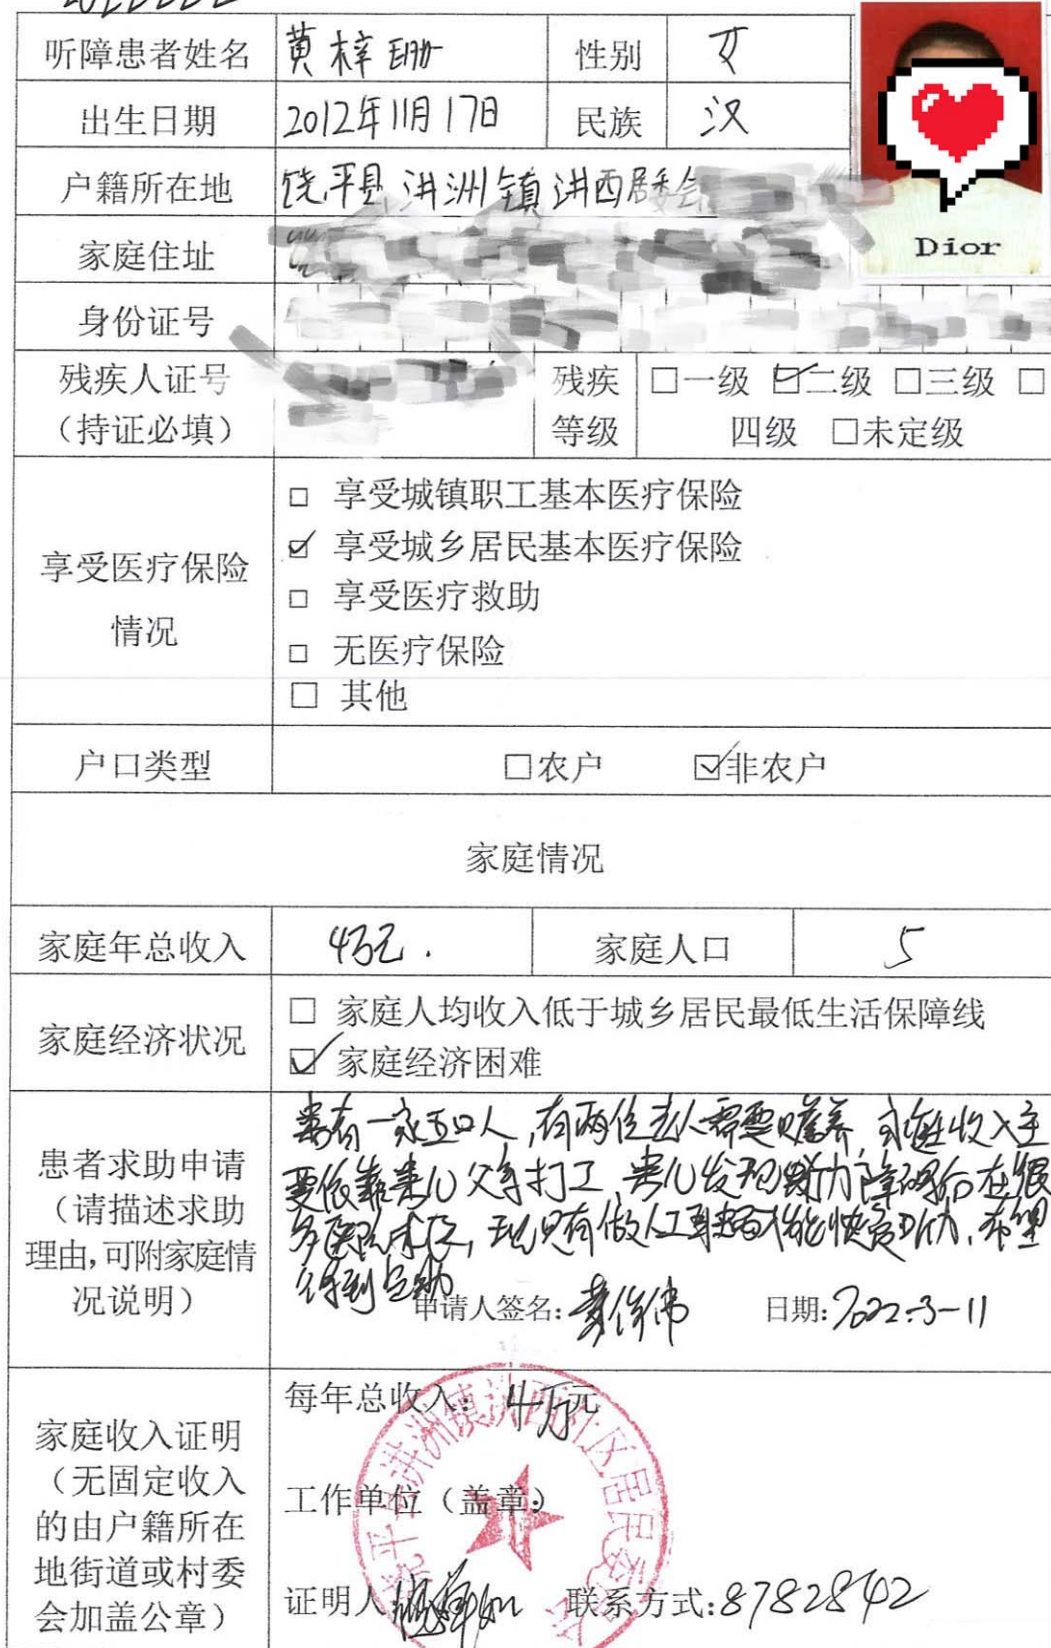 听障患者姓名 黄梓珊 性别 女
出生日期 2012年11月17日 民族 汉
户籍所在地 饶平县洪洲镇洪西居委会
Dior
家庭住址
身份证号
残疾人证号 残疾 □一级 ☑二级 □三级 □
（持证必填） 等级 四级 □未定级
□ 享受城镇职工基本医疗保险
☑ 享受城乡居民基本医疗保险
享受医疗保险
□ 享受医疗救助
情况
□ 无医疗保险
□ 其他
户口类型 □农户 ☑非农户
家庭情况
家庭年总收入 4万元. 家庭人口 5
家庭经济状况
□ 家庭人均收入低于城乡居民最低生活保障线
☑ 家庭经济困难
患者求助申请
（请描述求助
理由,可附家庭情
况说明）
一家五口人,有两位老人需要赡养,家庭收入主
要依靠患儿父亲打工,患儿发现听力障碍后在很
多医院求医,现只有做人工耳蜗才能恢复听力,希望
得到
申请人签名: 日期:2022-3-11
家庭收入证明
（无固定收入
的由户籍所在
地街道或村委
会加盖公章）
每年总收入: 4万元
工作单位（盖章）
证明人 联系方式:8782842
饶平县洪洲镇洪西社区居民委员会